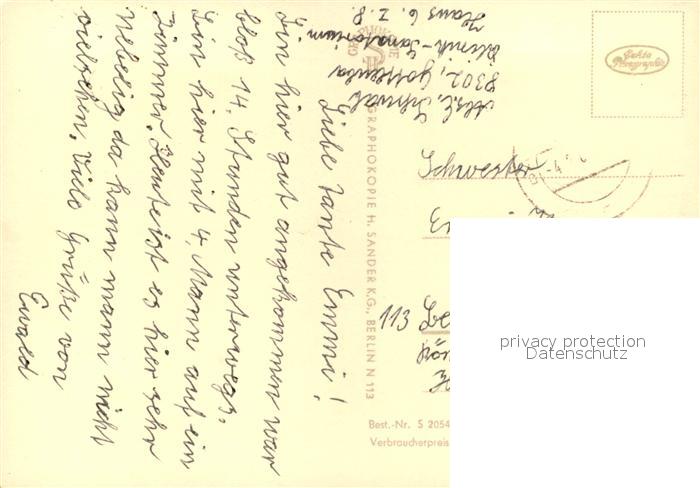 Abs. E. Schwab
8302, Gottleuba
Klinik-Sanatorium
Haus 6. Z. 8.
Liebe Tante Emmi!
Bin hier gut angekommen war
bloß 14. Stunden unterwegs.
Bin hier mit 4. Mann auf ein
Zimmer. Heute ist es hier sehr
Nebelig da kann mann nicht
vielsehen. Viele Grüße von
Ewald
GRAPHOKOPIE
GRAPHOKOPIE H. SANDER K.G., BERLIN N 113
Echte Photographie
Schwester
113 Be
Best.-Nr. S 2054
Verbraucherpreis
privacy protection
Datenschutz